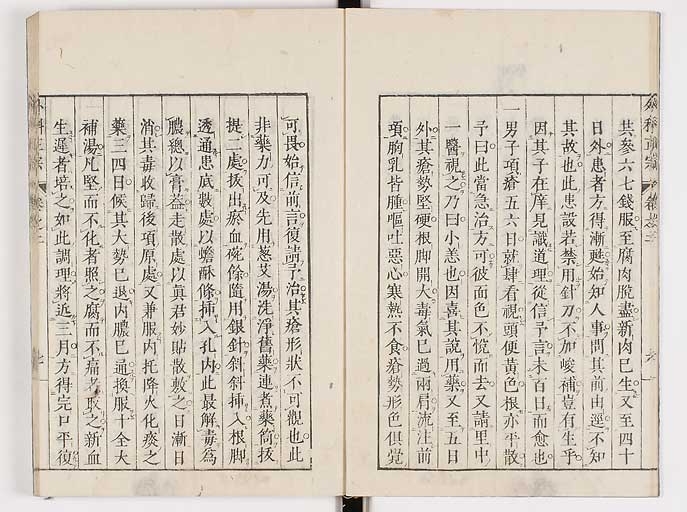 其參六七錢服至腐肉脫盡新肉已生又至四十
日外患者方得漸甦始知人事問其前由逕不知
其故也此患設若禁用針刀不加峻補豈有生乎
因其子在庠見識道理從信予言未百日而愈也
一男子項瘡五六日就肆看視頭便黃色根亦平散
予曰此當急治方可彼面色不悅而去又請里中
一醫視之乃曰小恙也因喜其說用藥又至五日
外其瘡勢堅硬根脚開大毒氣已過兩肩流注前
項胸乳皆腫嘔吐惡心寒熱不食瘡勢形色俱覺
可畏始信前言復請予治其瘡形狀不可觀也此
非藥力可及先用葱艾湯洗淨舊藥連煮藥筒拔
提二處拔出瘀血碗餘隨用銀針斜斜挿入根脚
透通患底數處以蟾酥條挿入孔內此最解毒爲
膿總以膏葢走散處以眞君妙貼散敷之日漸日
消其毒收歸後項原處又兼服內托降火化痰之
藥三四日候其大勢已退內膿已通換服十全大
補湯凡堅而不化者照之腐而不痛者取之新血
生遲者培之如此調理將近三月方得完口平復
外科正宗
卷之二